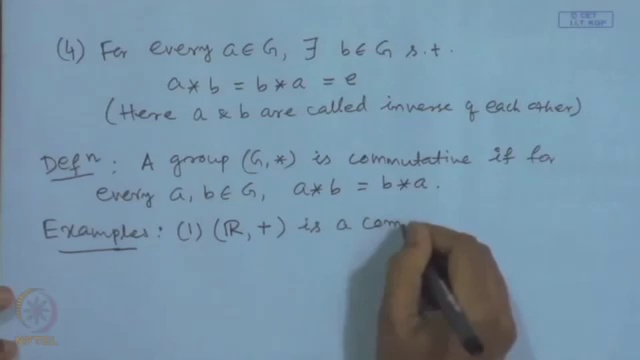 © CET
I.I.T. KGP
(4) For every a ∈ G, ∃ b ∈ G s.t.
a * b = b * a = e
(Here a & b are called inverse of each other)
Defⁿ: A group (G, *) is commutative if for
every a, b ∈ G, a * b = b * a.
Examples: (1) (ℝ, +) is a com
NPTEL